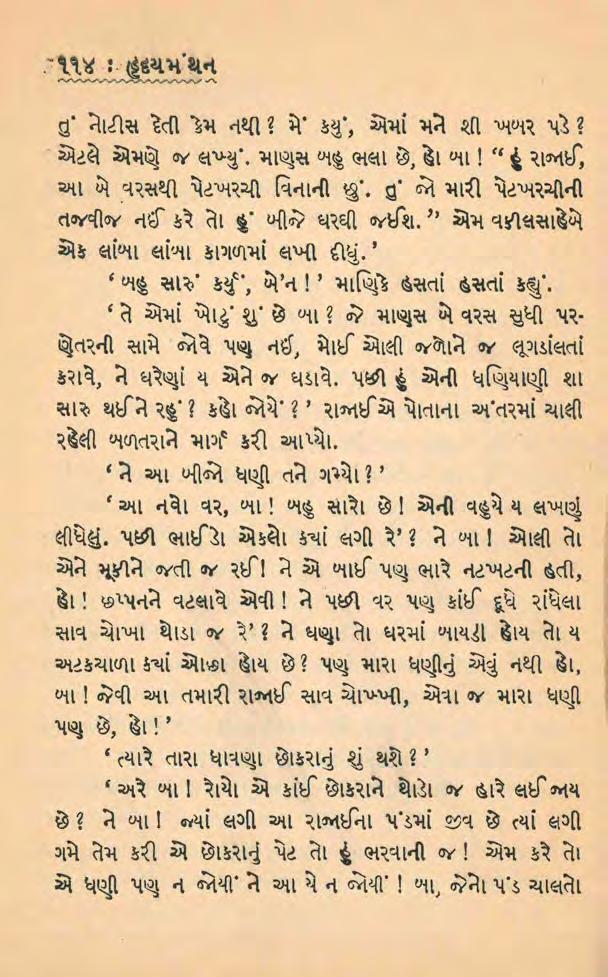 ૧૧૪ : હૃદયમંથન
તું નોટીસ દેતી કેમ નથી? મેં કર્યું, એમાં મને શી ખબર પડે?
એટલે એમણે જ લખ્યું. માણસ બહુ ભલા છે, હો બા ! “ હું રાજઈ,
આ બે વરસથી પેટખરચી વિનાની છું. તું જો મારી પેટખરચીની
તજવીજ નઈં કરે તો હું બીજે ઘરઘી જઈશ. ” એમ વકીલસાહેબે
એક લાંબા લાંબા કાગળમાં લખી દીધું. ’
‘ બહુ સારું કર્યું, બે'ન ! ’ માણિકે હસતાં હસતાં કહ્યું.
‘ તે એમાં ખોટું શું છે બા ? જે માણસ બે વરસ સુધી પર-
ણેતરની સામે જોવે પણ નઈં, મોઈ ઓલી જળોને જ લૂગડાંલતાં
કરાવે, ને ઘરેણાં ય એને જ ઘડાવે. પછી હું એની ધણિયાણી શા
સારુ થઈને રહું ? કહો જોયેં ? ’ રાજઈએ પોતાના અંતરમાં ચાલી
રહેલી બળતરાને માર્ગ કરી આપ્યો.
‘ ને આ બીજો ધણી તને ગમ્યો ? ’
‘ આ નવો વર, બા ! બહુ સારો છે ! એની વહુયે ય લખણું
લીધેલું. પછી ભાઈડો એકલો ક્યાં લગી રે' ? ને બા ! ઓલી તો
એને મૂકીને જતી જ રઈ ! ને એ બાઈ પણ ભારે નટખટની હતી,
હો ! છપ્પનને વટલાવે એવી ! ને પછી વર પણ કાંઈ દૂધે રાંધેલા
સાવ ચોખા થોડા જ રે' ? ને ઘણા તો ઘરમાં બાયડી હોય તો ય
અટકચાળા ક્યાં ઓછા હોય છે ? પણ મારા ધણીનું એવું નથી હો,
બા ! જેવી આ તમારી રાજઈ સાવ ચોખ્ખી, એવા જ મારા ધણી
પણ છે, હો ! ’
‘ ત્યારે તારા ધાવણા છોકરાનું શું થશે ? ’
‘ અરે બા ! રોયો એ કાંઈ છોકરાને થોડો જ હારે લઈ જાય
છે ? ને બા ! જ્યાં લગી આ રાજઈના પંડમાં જીવ છે ત્યાં લગી
ગમે તેમ કરી એ છોકરાનું પેટ તો હું ભરવાની જ ! એમ કરે તો
એ ધણી પણ ન જોયીં ને આ યે ન જોયીં ! બા, જેનો પંડ ચાલતો